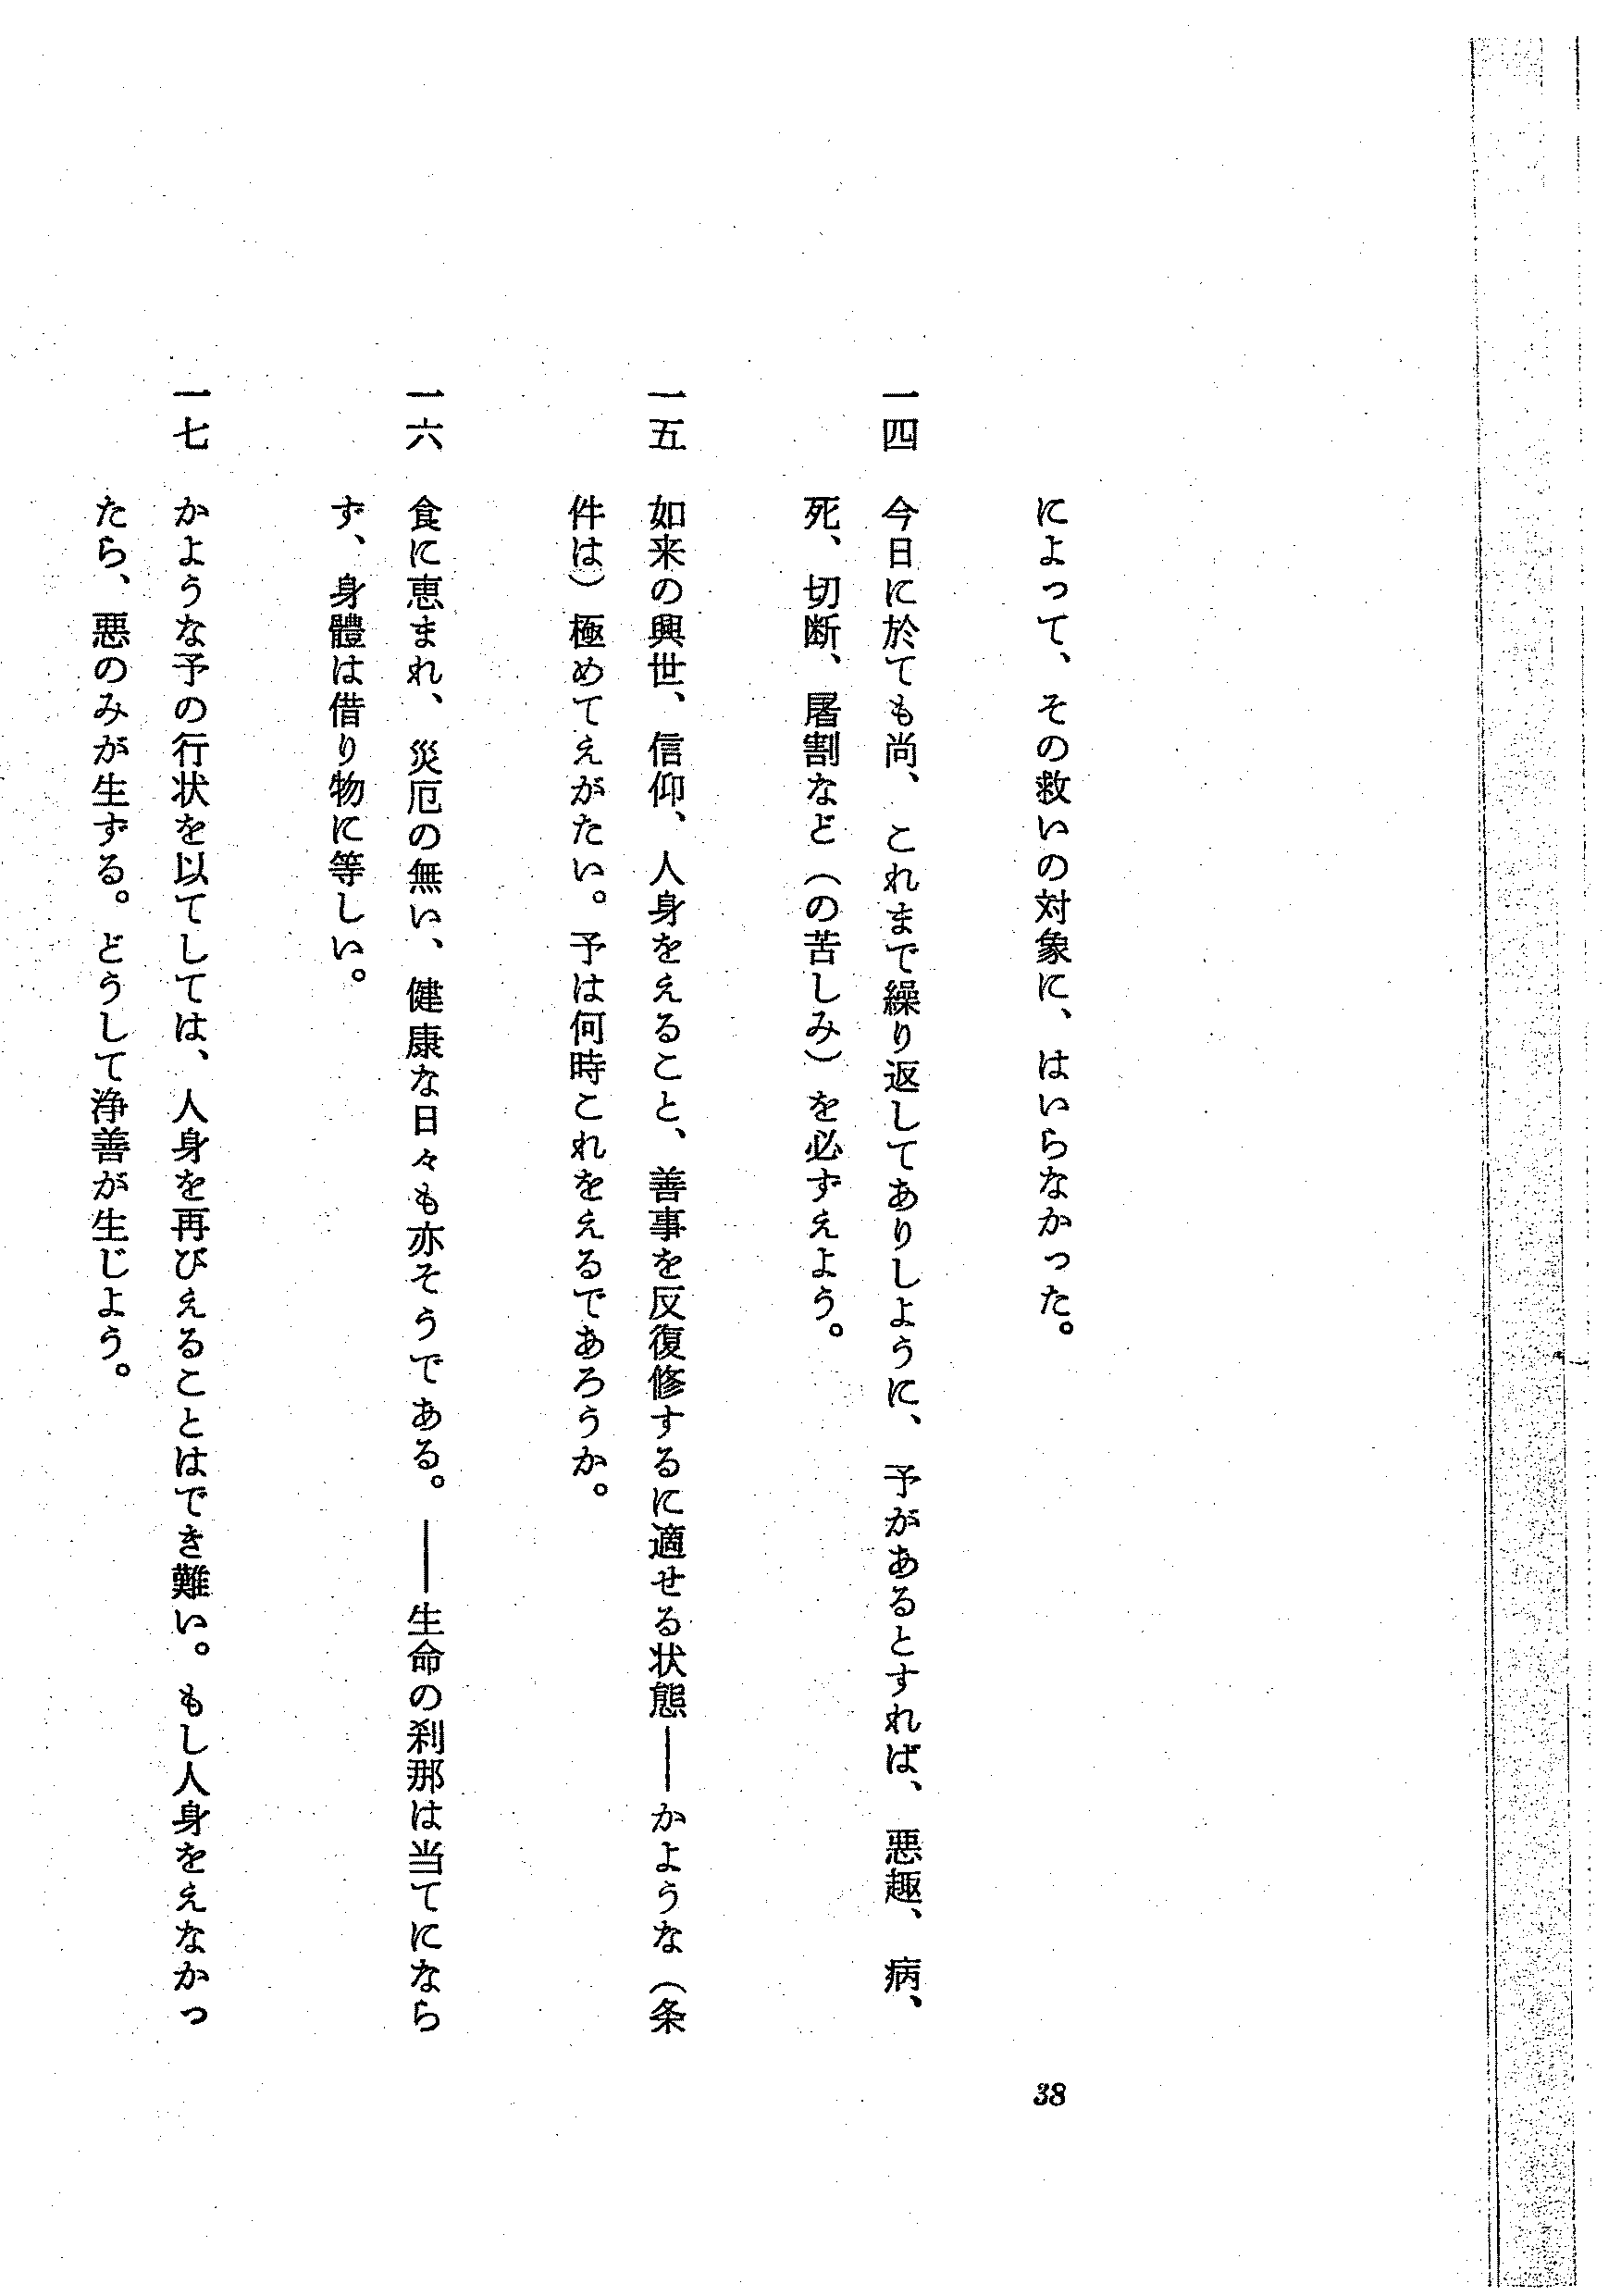 によって、その救いの対象に、はいらなかった。
一四　今日に於ても尚、これまで繰り返してありしように、予があるとすれば、悪趣、病、
死、切断、屠割など（の苦しみ）を必ずえよう。
一五　如来の興世、信仰、人身をえること、善事を反復修するに適せる状態――かような（条
件は）極めてえがたい。予は何時これをえるであろうか。
一六　食に恵まれ、災厄の無い、健康な日々も亦そうである。――生命の刹那は当てになら
ず、身體は借り物に等しい。
一七　かような予の行状を以てしては、人身を再びえることはでき難い。もし人身をえなかっ
たら、悪のみが生ずる。どうして浄善が生じよう。
38